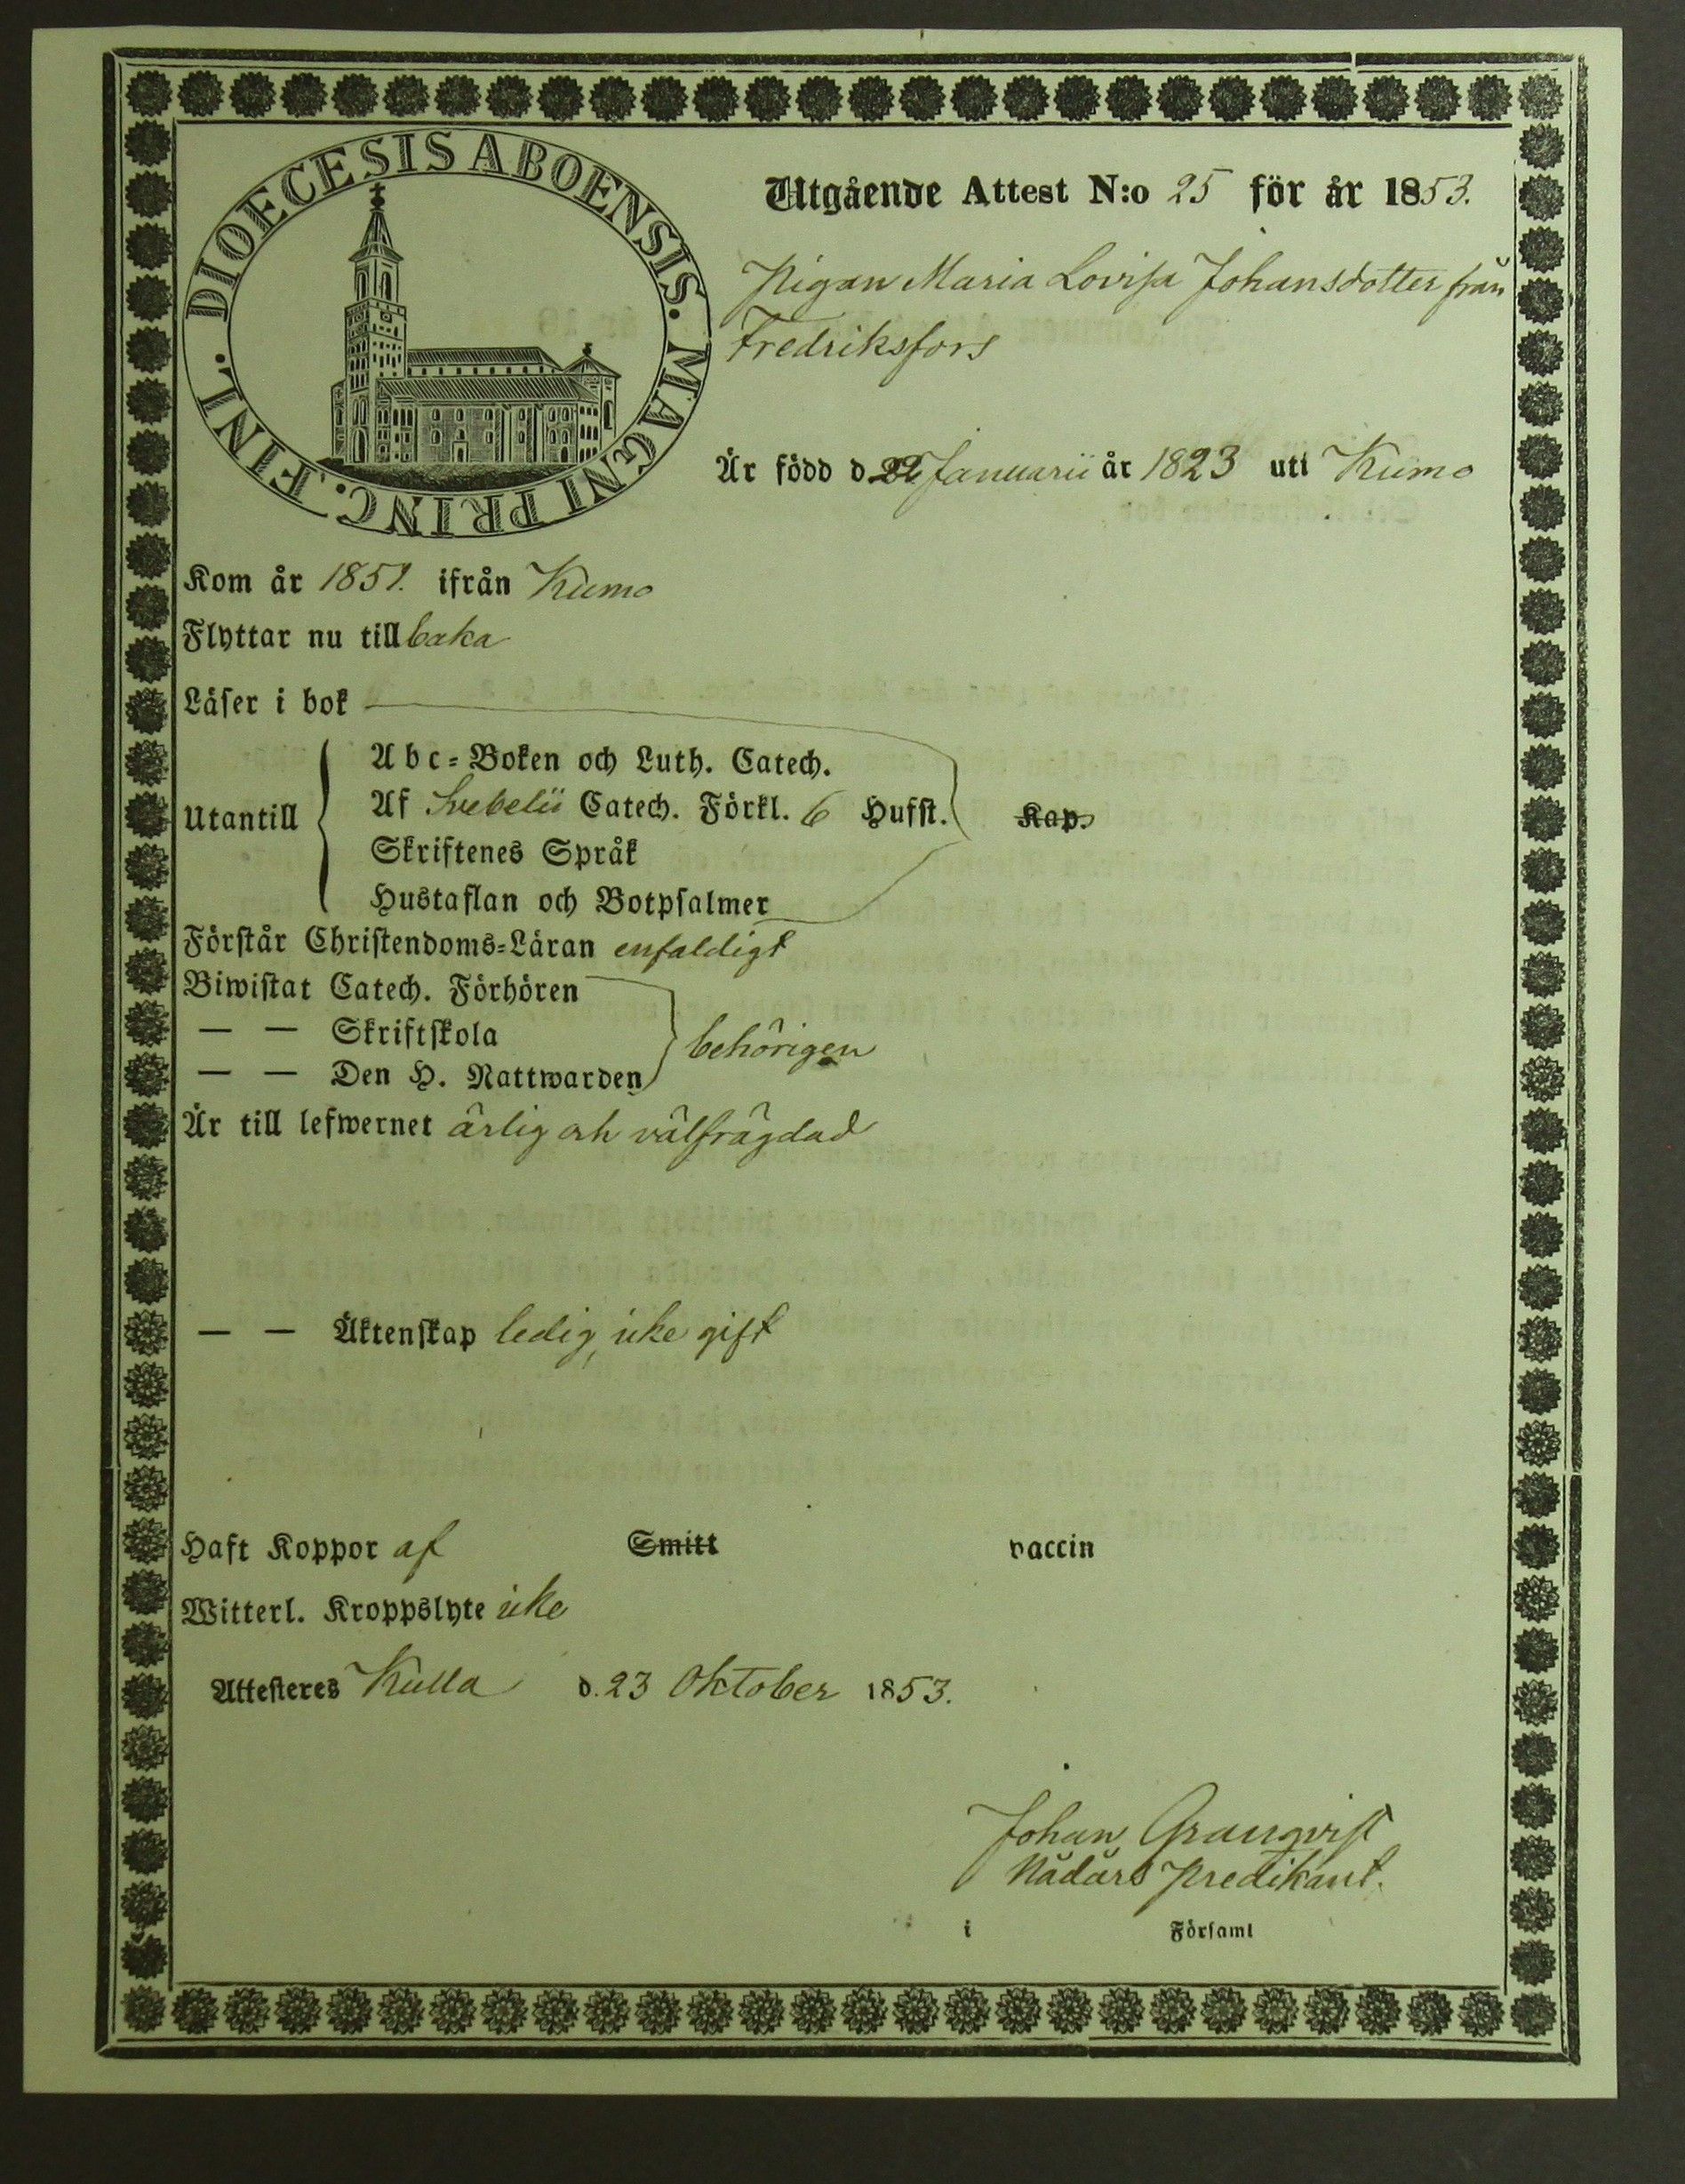 DIOECESIS ABOENSIS. MAGNI PRINC. FINL.
Utgående Attest N:o 25 för år 1853.
Pigan Maria Lovisa Johansdotter från
Fredriksfors
Är född d. 22 Januarii år 1823 uti Kumo
Kom år 1851. ifrån Kumo
Flyttar nu tillbaka
Läser i bok
Utantill
Abc-Boken och Luth. Catech.
Af Svebelii Catech. Förkl. 6 Hufst. Kap.
Skriftenes Språk
Hustaflan och Botpsalmer
Förstår Christendoms-Läran enfaldigt
Biwistat Catech. Förhören
— — Skriftskola
behörigen
— — Den H. Nattwarden
Är till lefwernet ärlig och välfrägdad
— — Äktenskap ledig, icke gift
Haft Koppor af Smitt vaccin
Witterl. Kroppslyte icke
Attesteres Kulla d. 23 Oktober 1853.
Johan Granqvist
Nådårs Predikant.
i Församl